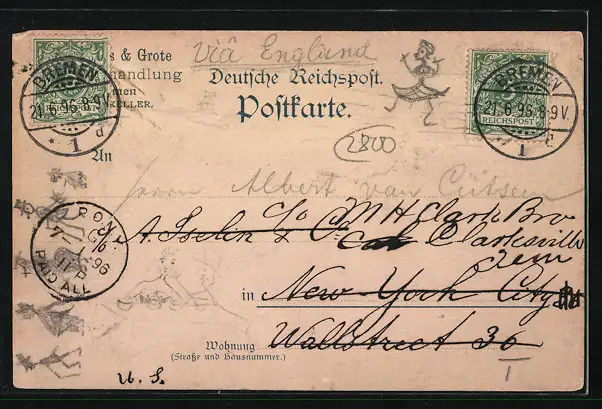 s & Grote
handlung
men
KELLER.
Viâ England
Deutsche Reichspost.
Postkarte.
BREMEN
21.6.96.8-9V.
* 1 d
REICHSPOST
BREMEN
21.6.96.8-9V.
1
2800
An
Herrn Albert van Cutsem
c/o M H Clark Bro
A. Iselin & Co Clarksville
Tenn
in New York City
Wallstreet 36
Wohnung
(Straße und Hausnummer.)
7-1
96
11 P
PAID ALL
U. S.